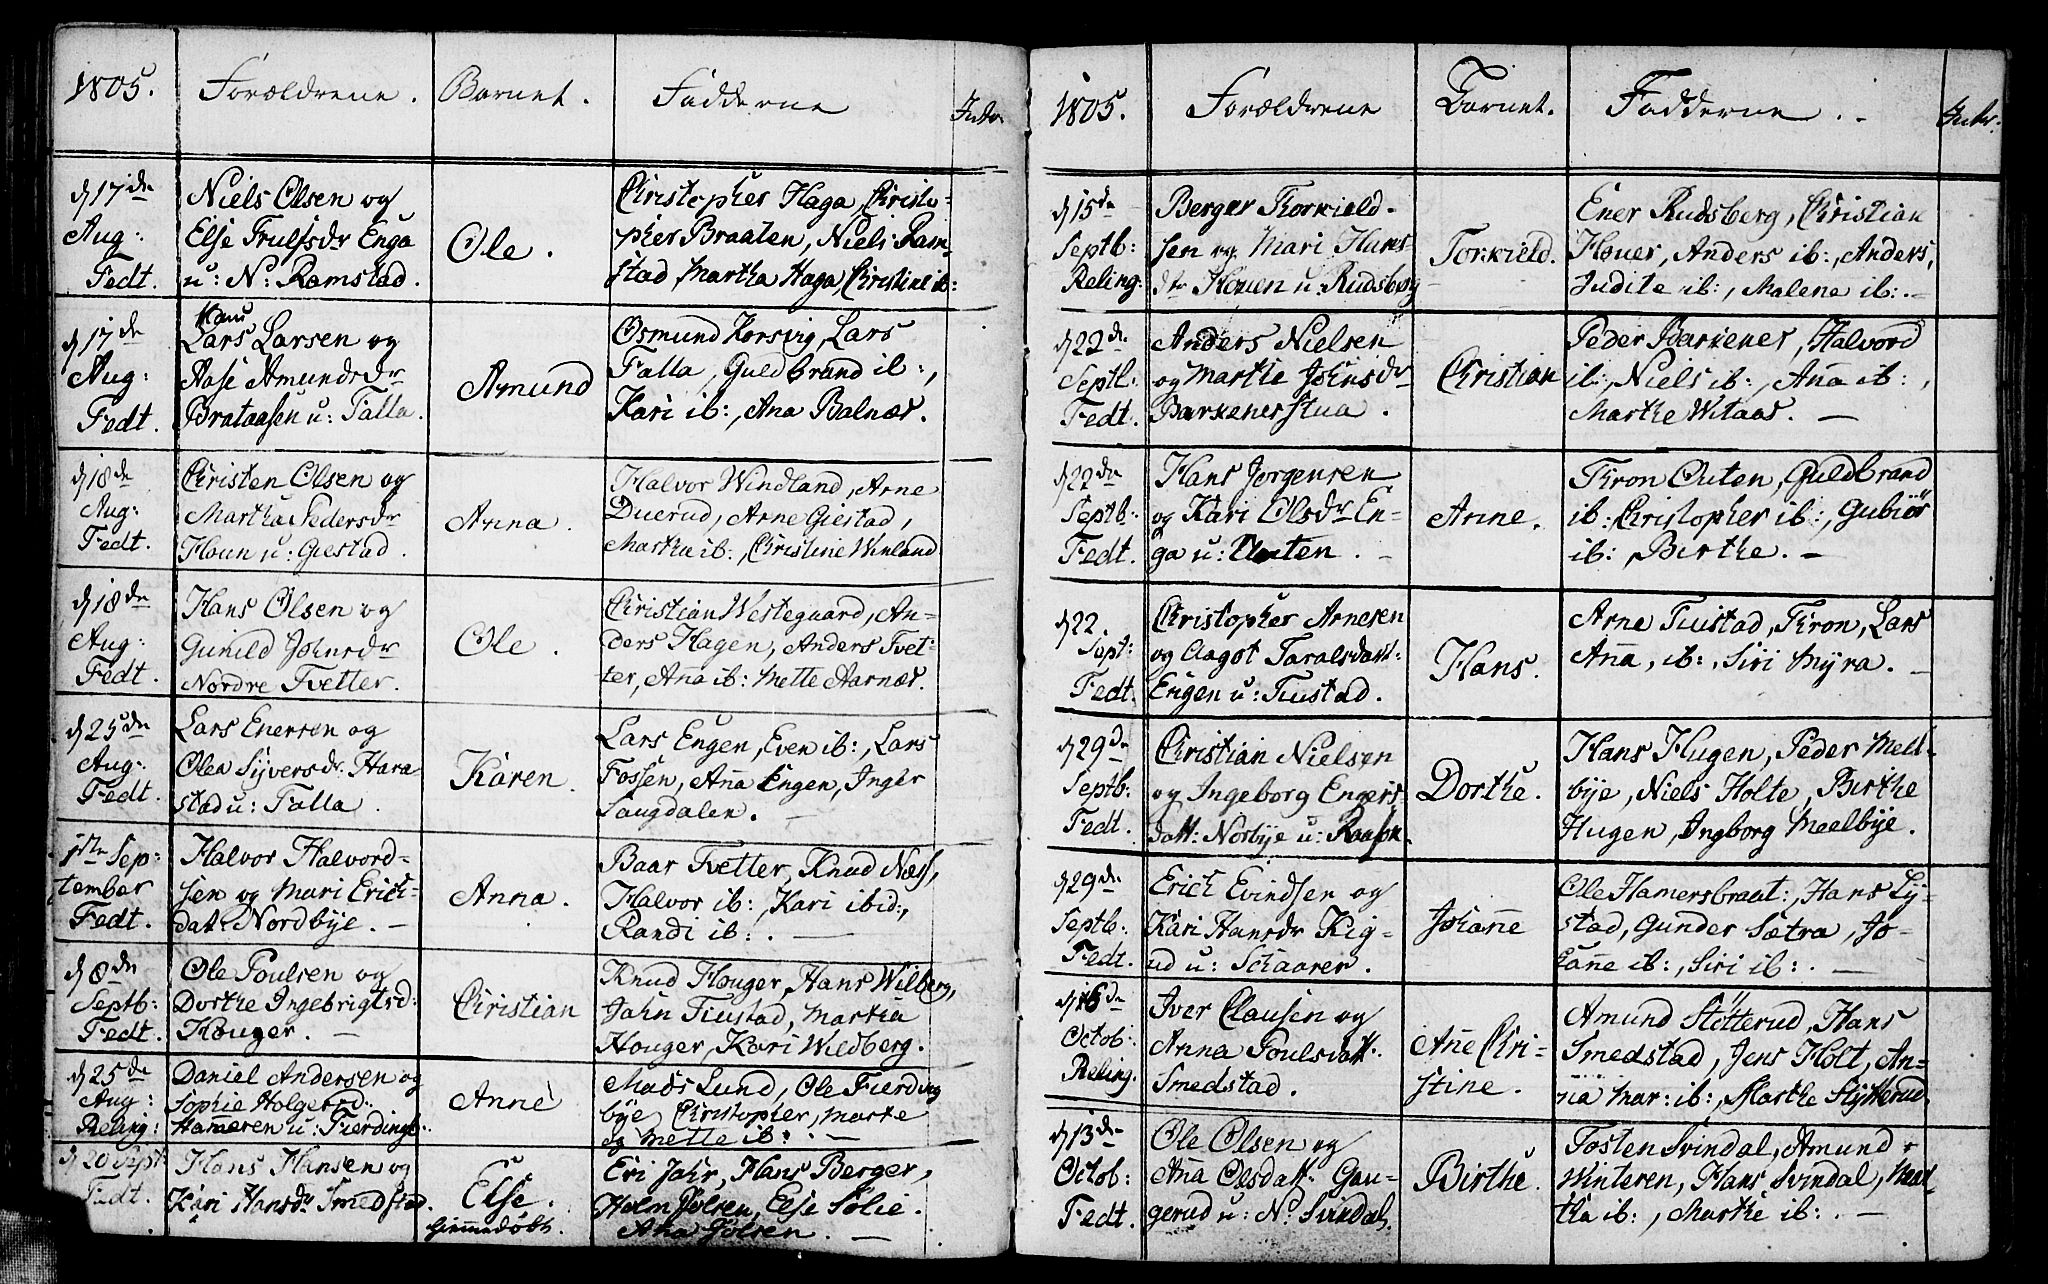 1805. Forældrene. Barnet. Fadderne Intr.
d 17de Aug: Fedt.
Niels Olsen og
Else Trulsdr Enga
u: N: Ramstad.
Ole.
Christopher Haga, Christo-
pher Braaten, Niels Ram-
stad, Martha Haga, Christine ib:
d 17de Aug: Fedt.
Hans
Lars Larsen og
Aase Amundsdr
Brataasen u: Falla.
Amund
Osmund Korsvig, Lars
Falla, Guldbrand ib:,
Kari ib:, Ana Balnær.
d 18de Aug: Fedt.
Christen Olsen og
Martha Pedersdr
Houn u: Giestad.
Anna.
Halvor Windland, Arne
Duerud, Arne Giestad,
Marthe ib:, Christine Winland
d 18de Aug: Fedt.
Hans Olsen og
Gunild Johnsdr
Nordre Tvetter.
Ole.
Christian Westegaard, An-
ders Hagen, Anders Tvet-
ter, Aña ib: Mette Aarnær.
d 25de Aug: Fedt.
Lars Enersen og
Olea Syversdr. Hara
stad u: Falla.
Karen.
Lars Engen, Even ib:, Lars
Fossen, Aña Engen, Inger
Laugdalen. —
1ste Sep: tember Fedt.
Halvor Halvord-
sen og Mari Erich-
dat: Nordbye. —
Anna.
Baar Tvetter, Knud Næss,
Halvor ib:, Kari ibid:,
Randi ib:. —
d 8de Septb: Fedt.
Ole Poulsen og
Dorthe Ingebrigtsd:
Houger. —
Christian
Knud Houger, Hans Wilberg,
John Tiustad, Martha
Houger, Kari Wildberg.
d 25de Aug: Reling:
Daniel Andersen og
Sophie Holgersd:
Hameren u: Fierdingb:.
Anne
Mads Lund, Ole Fierding
bye Christopher, Marthe
og Mette ib:. —
d 20 Sept: Fedt.
Hans Hansen og
Kari Hansdr Smedstad.
Else.
Giemmedøbt.
Eri Jahr, Hans Berger,
Holm Jølsen, Else Solie.
Ana Jølsen. —
1805. Forældrene Barnet. Fadderne. - Intr.
d 15de Septb: Reling:
Berger Thorkield-
sen og Mari Hans-
dtr Houen u: Rudsberg
Torkield.
Ener Rudsberg, Christian
Houer, Anders ib:, Anders,
Judite ib:, Malene ib:. —
d 22de Septb: Fedt.
Anders Nielsen
og Marthe Johnsdr
Barkenerstua.
Christian
Peder Barkener, Halvord
ib:, Niels ib:, Aña ib:,
Marthe Witaas. —
d 22de Septb: Fedt.
Hans Jorgensen
og Kari Olsdr En-
ga u: Outen. —
Anne.
Thron Outen, Guldbrand
ib:, Christopher ib:, Gubiör
ib:, Birthe. —
d 22. Sept: Fedt.
Christopher Arnesen
og Aagot Taralsdatt:
Engen u: Tiustad.
Hans.
Arne Tiustad, Thron, Lars
Aña, ib:, Siri Myra. —
d 29de Septb: Fedt.
Christian Nielsen
og Ingeborg Eners-
datt: Norbye u: Raasok.
Dorthe.
Hans Hugen, Peder Mell-
bye, Niels Holte, Birthe
Hugen, Ingborg Meelbye.
d 29de Septb: Fedt.
Erich Evindsen og
Kari Hansdr Rig-
ud u: Schaarer.
Johañe
Ole Hamersbraat:, Hans Ly-
stad, Gunder Sætra, Jo-
hañe ib:, Siri ib:. —
d 6de Octob: Reling.
Iver Clausen og
Anna Poulsdatt:
Smedstad.
Añe Chri-
stine.
Amund Stötterud, Hans
Smedstad, Jens Holt, An-
na Mar: ib:, Marthe Stytterud,
d 13de Octob: Fedt.
Ole Olsen og
Aña Olsdatt: Gau-
gerud u: N: Svindal.
Birthe.
Tosten Svindal, Amund
Winteren, Hans Svindal, Mar-
tha ib:, Marthe ib:. —